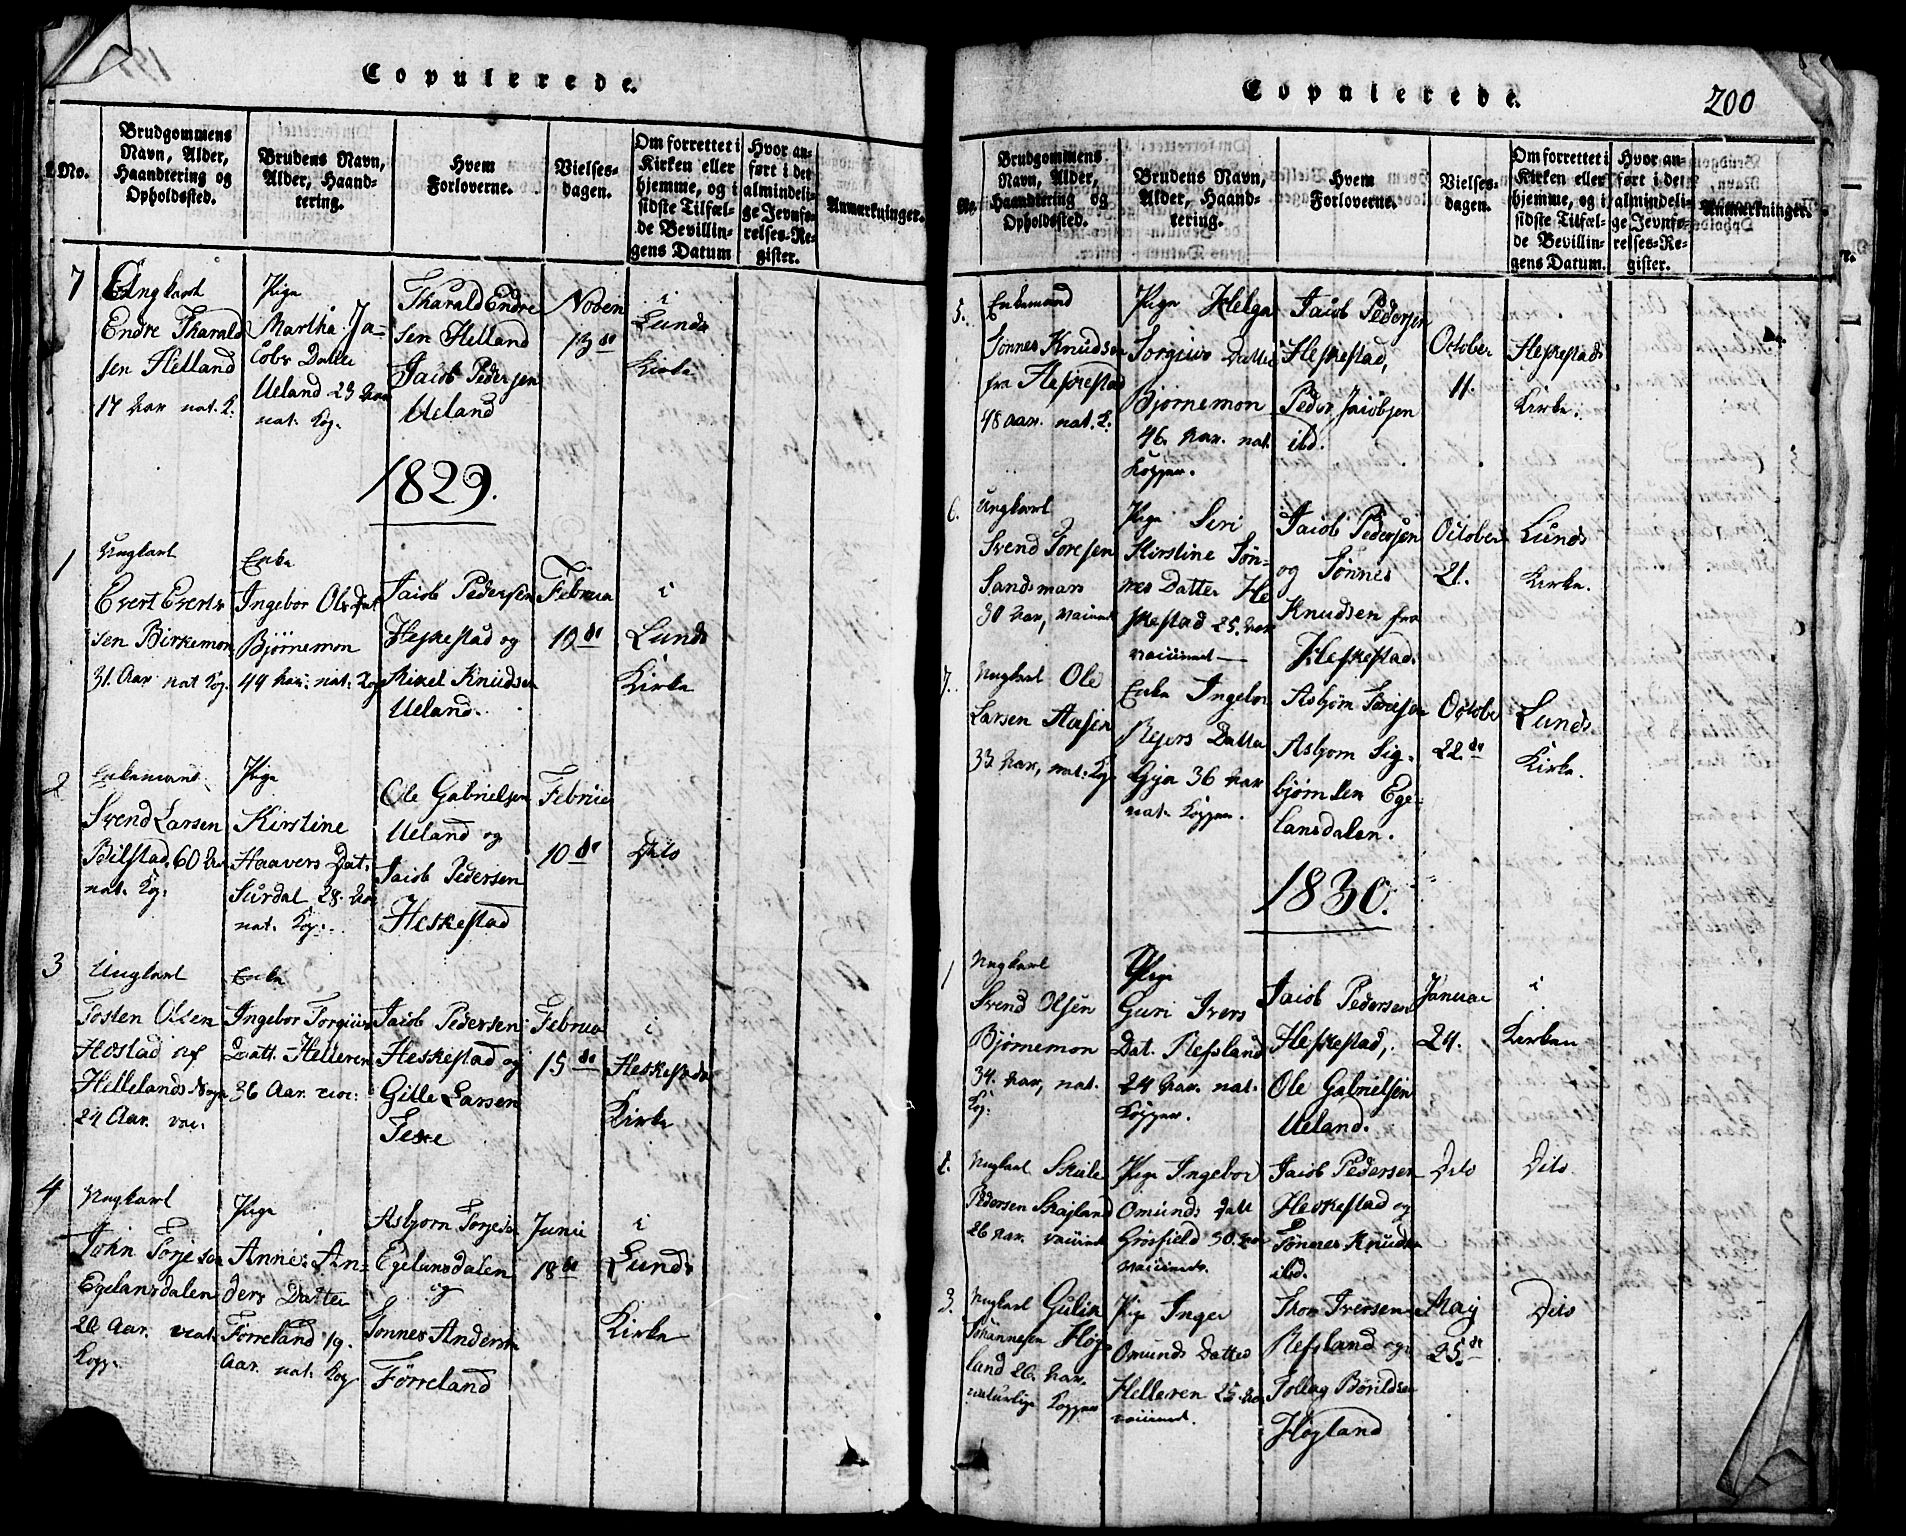 Copulerede.
No.
Brudgommens
Navn, Alder,
Haandtering og
Opholdssted.
Brudens Navn,
Alder, Haand-
tering.
Hvem
Forloverne.
Vielses-
dagen.
Om forrettet i
Kirken eller
hjemme, og i
sidste Tilfæl-
de Bevillin-
gens Datum
Hvor an-
ført i det
almindeli-
ge Jevnfø-
relses-Re-
gister.
Anmærkninger.
7
Ungkarl
Endre Tharald
sen Helland
17 Aar nat. K.
Pige
Martha Ja-
cobs Datter
Ueland 23 Aar
nat. Kop.
Tharald Endre
sen Helland
Jacob Pedersen
Ueland
Novem
13de
i
Lunds
Kirke
1829.
1
Ungkarl
Evert Everts
sen Birkemon
31. Aar nat Kop.
Enke
Ingebor Ols Dat
Bjørnemon
49 Aar. nat. Kop
Jacob Pedersen
Heskestad og
Mikel Knudsen
Ueland.
Februa
10de
i
Lunds
Kirke
2
Enkemand
Svend Larsen
Bilstad, 60 Aar
nat. Kop.
Pige
Kirstine
Haavers Dat.
Surdal 28. Aar
nat. Kop.
Ole Gabrielsen
Ueland og
Jacob Pedersen
Heskestad
Februa
10de
Dito
3
Ungkarl
Tosten Olsen
Hostad af
Hellelands Sogn
24 Aar. vac.
Enke
Ingebor Torgius
Datt. Helleren
36 Aar. vac.
Jacob Pedersen
Heskestad og
Gille Larsen
Eeske
Februa
15de
i
Heskestads
Kirke
4
Ungkarl
John Torjesen
Egelandsdalen
20 Aar. nat.
Kopp.
Pige
Anne An-
ders Datter
Førreland 19.
Aar. nat. Kop
Asbjørn Torjesen
Egelandsdalen
og
Tønnes Anders
Førreland
Junii
18de
i
Lunds
Kirke
Copulerede.
200
No.
Brudgommens
Navn, Alder,
Haandtering og
Opholdssted.
Brudens Navn,
Alder, Haand-
tering.
Hvem
Forloverne.
Vielses-
dagen.
Om forrettet i
Kirken eller
hjemme, og i
sidste Tilfæl-
de Bevillin-
gens Datum.
Hvor an-
ført i det
almindeli-
ge Jevnfø-
relses-Re-
gister.
Anmærkninger.
5.
Enkemand
Tønnes Knudsen
fra Heskestad
48 aar. nat. K.
Pige Helga
Torgius Datter
Bjørnemon
46. Aar. nat.
Kopper.
Jacob Pedersen
Heskestad,
Peder Jacobsen
ibd.
October
11.
Heskestads
Kirke.
6.
Ungkarl
Svend Toresen
Sandsmark
30 Aar, vaccineret
Pige Siri
Kirstine Tøn-
nes Datter He
skestad 25. Aar
vaccineret
Jacob Pedersen
og Tønnes
Knudsen fra
Heskestad.
October
21.
Lunds
Kirke.
7.
Ungkarl Ole
Larsen Aasen
33 Aar, nat. Kop
Enke Ingebor
Rejers Datter
Gya 36 Aar
nat. Kopper.
Asbjørn Torresen
Asbjorn Sig-
bjørnsen Ege-
landsdalen.
October
22.de
Lunds
Kirke.
1830.
1
Ungkarl
Svend Olsen
Bjørnemon
34. Aar, nat.
Kop.
Pige
Guri Ivers
Dat. Refsland
24 Aar. nat.
Kopper.
Jacob Pedersen
Heskestad,
Ole Gabrielsen
Ueland.
Januar
24.
i
Kirken
2.
Ungkarl Skule
Pedersen Skajland
26 Aar. vaccineret
Pige Ingebor
Omunds Datt
Grøsfield 30. Aar
vaccineret.
Jacob Pedersen
Heskestad og
Tønnes Knudsen
ibd.
Dito
Dito
3.
Ungkarl Gulik
Johannesen Høg
land 26. Aar.
naturlige Kopper
Pige Inger
Omunds Datter
Helleren 25 Aar
vaccineret.
Thom Iversen
Refsland og
Tollag Børildsen
Høgland
Maj
25.de
Dito